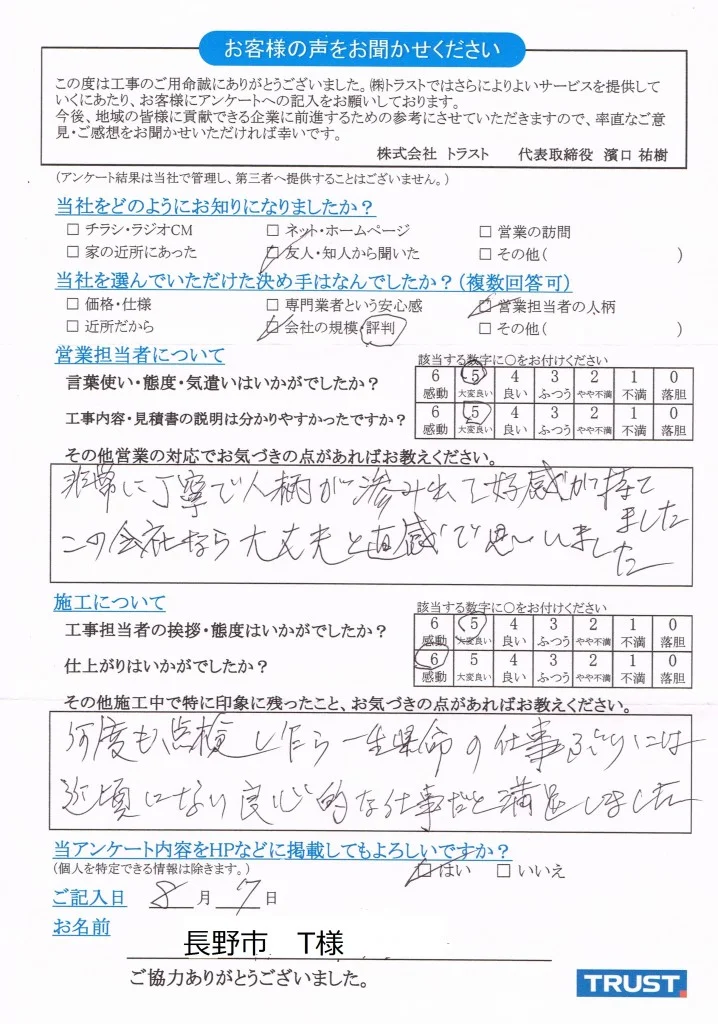 お客様の声をお聞かせください
この度は工事のご用命誠にありがとうございました。㈱トラストではさらによりよいサービスを提供して
いくにあたり、お客様にアンケートへの記入をお願いしております。
今後、地域の皆様に貢献できる企業に前進するための参考にさせていただきますので、率直なご意
見・ご感想をお聞かせいただければ幸いです。
株式会社 トラスト 代表取締役 濱口 祐樹
(アンケート結果は当社で管理し、第三者へ提供することはございません。)
当社をどのようにお知りになりましたか?
□ チラシ・ラジオCM □ ネット・ホームページ □ 営業の訪問
□ 家の近所にあった □ 友人・知人から聞いた □ その他( )
当社を選んでいただけた決め手はなんでしたか?(複数回答可)
□ 価格・仕様 □ 専門業者という安心感 □ 営業担当者の人柄
□ 近所だから □ 会社の規模・評判 □ その他( )
営業担当者について 該当する数字に○をお付けください
言葉使い・態度・気遣いはいかがでしたか? 6 5 4 3 2 1 0
感動 大変良い 良い ふつう やや不満 不満 落胆
工事内容・見積書の説明は分かりやすかったですか? 6 5 4 3 2 1 0
感動 大変良い 良い ふつう やや不満 不満 落胆
その他営業の対応でお気づきの点があればお教えください。
非常に丁寧で人柄が滲み出て好感が持て
ました
この会社なら大丈夫と直感で思いました
施工について 該当する数字に○をお付けください
工事担当者の挨拶・態度はいかがでしたか? 6 5 4 3 2 1 0
感動 大変良い 良い ふつう やや不満 不満 落胆
仕上がりはいかがでしたか? 6 5 4 3 2 1 0
感動 大変良い 良い ふつう やや不満 不満 落胆
その他施工中で特に印象に残ったこと、お気づきの点があればお教えください。
何度も点検し乍ら一生県命の仕事ぶりには
近頃にない良心的な仕事だと満足しました
当アンケート内容をHPなどに掲載してもよろしいですか?
(個人を特定できる情報は除きます。) □ はい □ いいえ
ご記入日 8 月 7 日
お名前
長野市 T様
ご協力ありがとうございました。
TRUST.